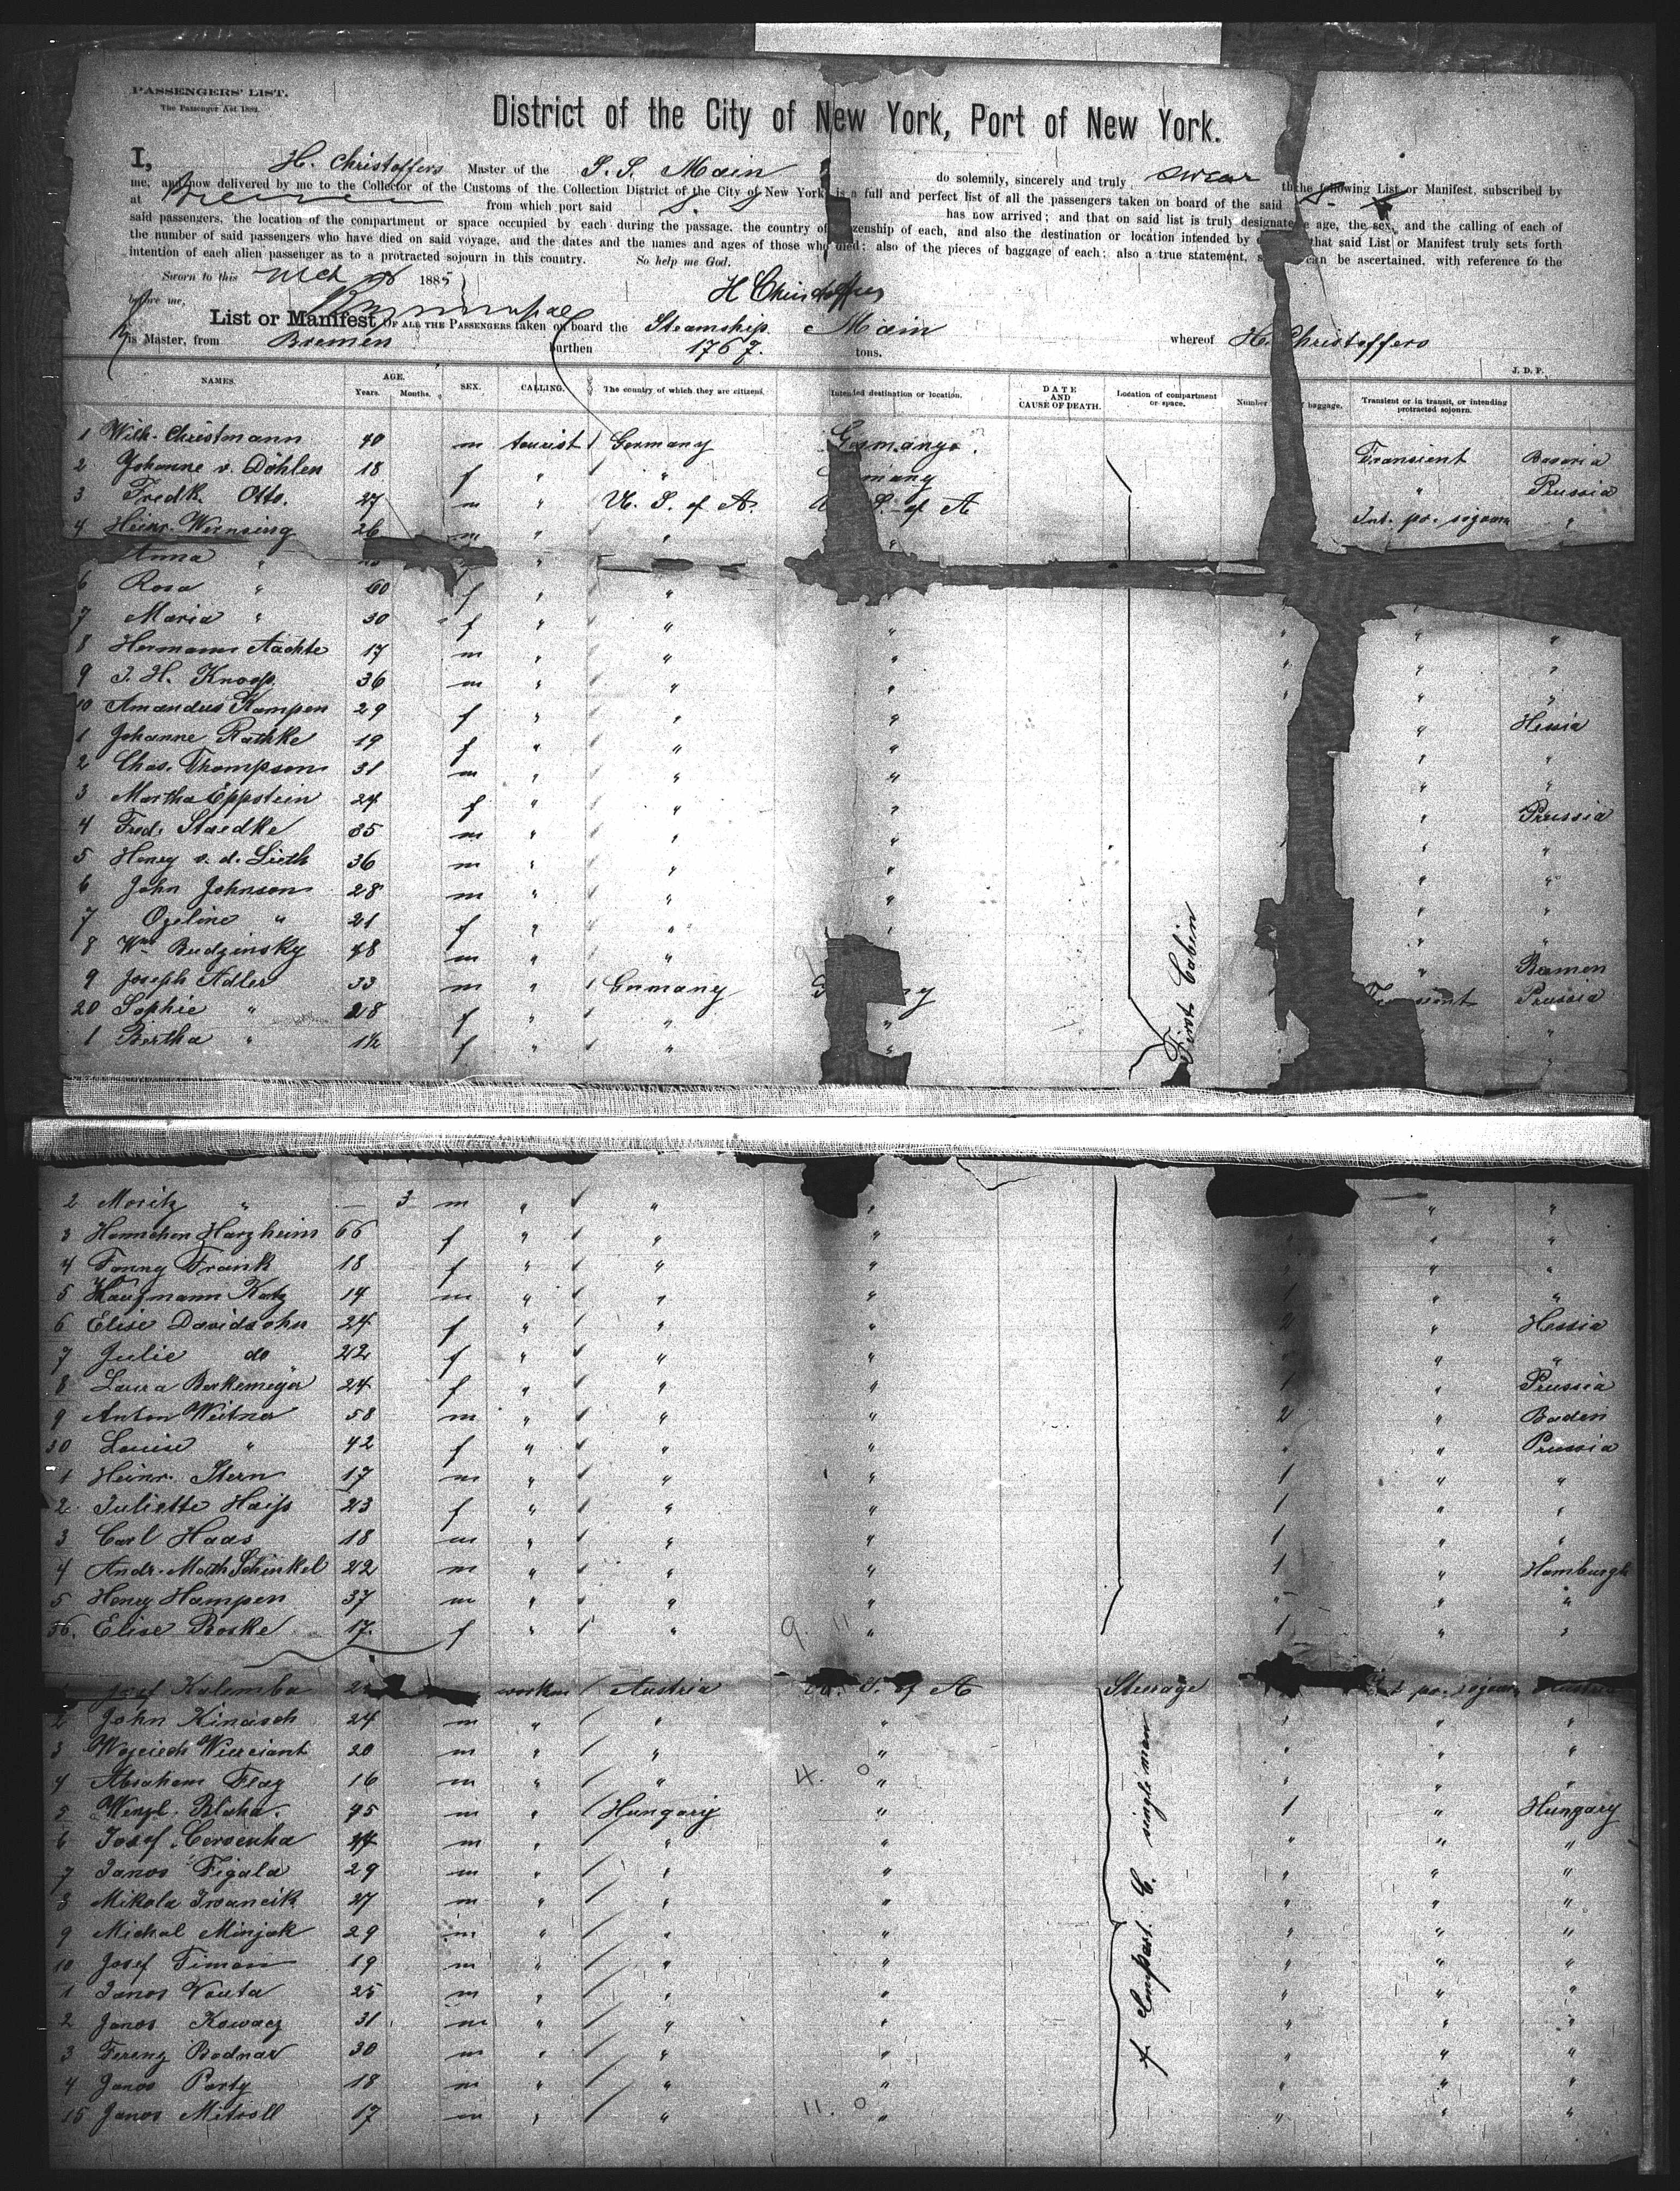 PASSENGERS' LIST.
The Passenger Act 1882.
District of the City of New York, Port of New York.
I, H. Christoffers Master of the S. S. Main do solemnly, sincerely and truly swear the following List or Manifest, subscribed by
me, and now delivered by me to the Collector of the Customs of the Collection District of the City of New York is a full and perfect list of all the passengers taken on board of the said S. S.
at Bremen from which port said S. S. has now arrived; and that on said list is truly designated age, the sex, and the calling of each of
said passengers, the location of the compartment or space occupied by each during the passage, the country of citizenship of each, and also the destination or location intended by that said List or Manifest truly sets forth
the number of said passengers who have died on said voyage, and the dates and the names and ages of those who died; also of the pieces of baggage of each; also a true statement, can be ascertained, with reference to the
intention of each alien passenger as to a protracted sojourn in this country. So help me God.
Sworn to this 1885
before me, H Christoffers
List or Manifest OF ALL THE PASSENGERS taken on board the Steamship Main whereof H. Christoffers
is Master, from Bremen burthen 1767. tons.
J. D. P.
NAMES. AGE. Years. Months. SEX. CALLING. The country of which they are citizens. Intended destination or location. DATE AND CAUSE OF DEATH. Location of compartment or space. Number baggage. Transient or in transit, or intending protracted sojourn.
1 Wilh. Christmann 40 m tourist Germany Germany Transient Bavaria
2 Johanne v. Döhlen 18 f " " many " Prussia
3 Fredk. Otto. 27 m " U. S. of A. S. of A Int. po. sojourn "
4 Heinr. Wernsing 26 m " " "
Anna " "
6 Rosa " 60 f " " "
7 Maria " 30 f " " " " " "
8 Hermann Aachte 17 m " " " " " "
9 J. H. Knoop 36 m " " " " " "
10 Amandus Kampen 29 f " " " " Hessia
1 Johanne Rathke 19 f " " " " "
2 Chas. Thompson 31 m " " " " "
3 Martha Eppstein 24 f " " " " Prussia
4 Fred. Staedke 35 m " " " " "
5 Henry v. d. Lieth 36 m " " " " "
6 John Johnson 28 m " " " " "
7 Ozeline " 21 f " " " " "
8 Wm Budzinsky 48 m " " " Bremen
9 Joseph Adler 33 m " Germany Prussia
20 Sophie " 28 f " " " "
1 Bertha " 1½ f " " " "
First Cabin
2 Moritz " 3 m " " " " "
3 Hannchen Harzheim 66 f " " " " "
4 Fanny Frank 18 f " " " " "
5 Katz 14 m " " " 1 " "
6 Elise Davidsohn 24 f " " " 2 " Hessia
7 Julie do 22 f " " " " "
8 Laura Berkemeyer 24 f " " " 1 " Prussia
9 Anton Weitner 58 m " " " 2 " Baden
30 Louise " 42 f " " " " " Prussia
1 Heinr. Stern 17 m " " " 1 " "
2 Juliette Haiss 23 f " " " 1 " "
3 Carl Haas 18 m " " " 1 " "
4 Andr. Math Schinkel 22 m " " " 1 " Hamburgh
5 Henry Hampen 37 m " " " " " "
36. Elise Boske 17. f " " 9. 11 " 1 " "
Josef Kolomba worker Austria S. of A Steerage po. sojourn Austria
2 John Kinasch 24 m " " " " " "
3 Wojciech Wierciant 20 m " " " " " "
4 Abraham Flag 16 m " " 4. 0 " " " "
5 Wenzl. Blaha. 45 m " Hungary " 1 " Hungary
6 Josef Cervenka 24 m " " " " " "
7 Janos Figala 29 m " " " " " "
8 Mikola Iwancik 27 m " " " " " "
9 Michal Minjak 29 m " " " " " "
10 Josef Timan 19 m " " " " " "
1 Janos Vouta 25 m " " " " " "
2 Janos Kowacz 31 m " " " " " "
3 Ferenz Bodnar 30 m " " " " " "
4 Janos Party 18 m " " " " " "
15 Janos Mitroll 17 m " " 11. 0 " " " "
f Compart. C. single men